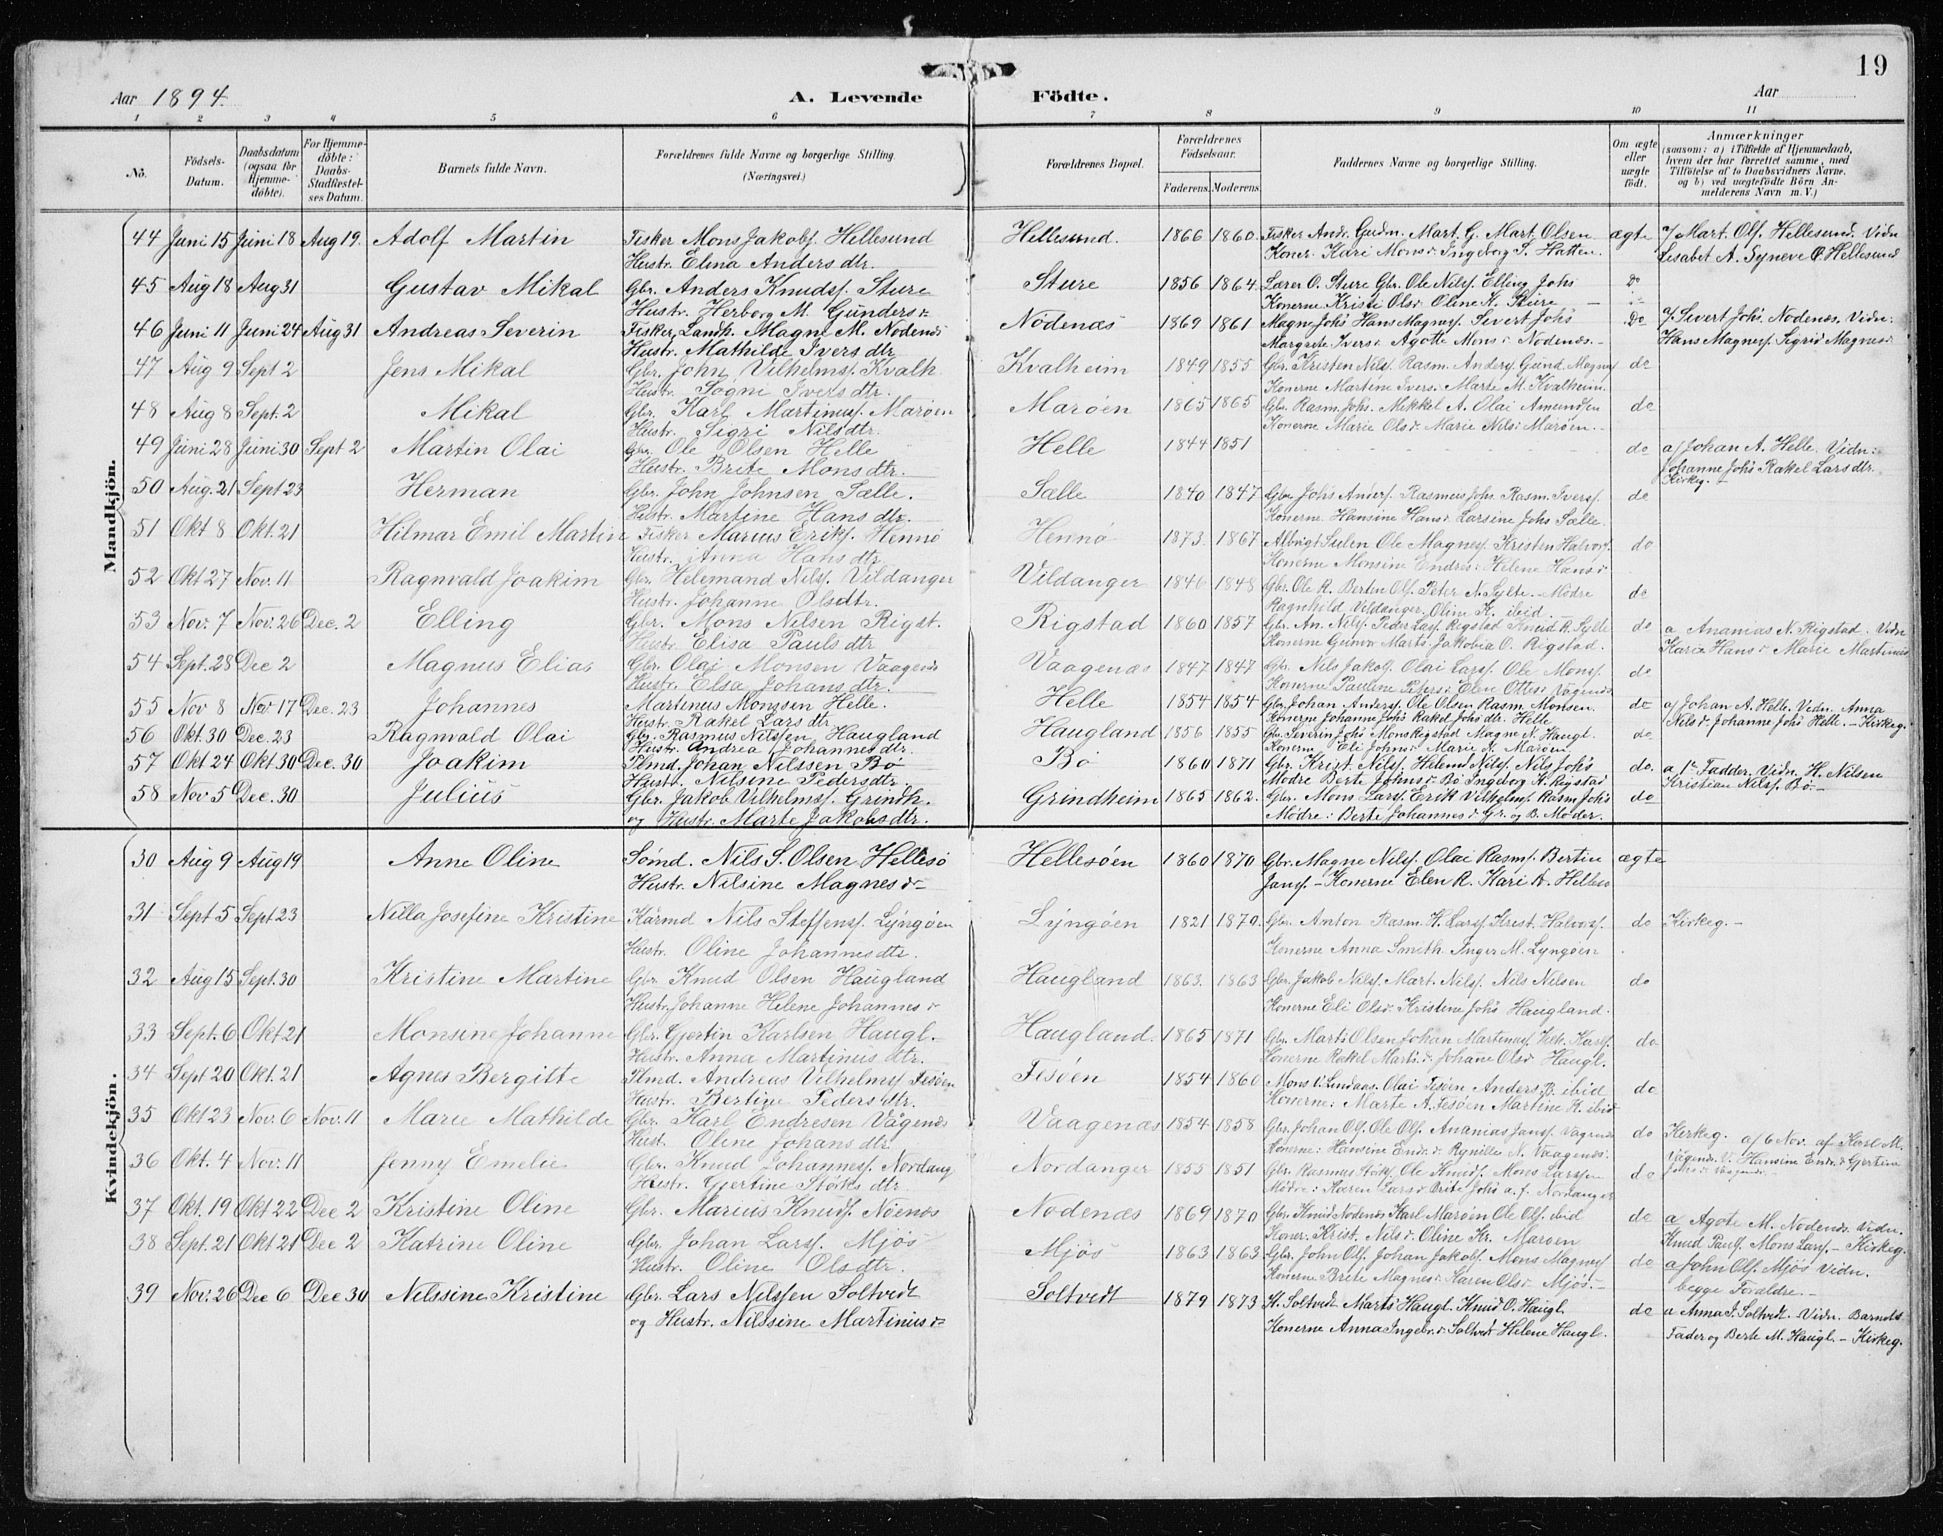 19
Aar 1894. A. Levende Födte. Aar
1 2 3 4 5 6 7 8 9 10 11
No. Födsels-Datum. Daabsdatum (ogsaa for Hjemmedöbte). For Hjemmedöbte: Daabs-Stadfæstelses Datum. Barnets fulde Navn. Forældrenes fulde Navne og borgerlige Stilling. (Næringsvei.) Forældrenes Bopæl. Forældrenes Födselsaar. Faderens. Moderens. Faddernes Navne og borgerlige Stilling. Om ægte eller uægte födt. Anmærkninger (saasom: a) i Tilfælde af Hjemmedaab, hvem der har forrettet samme, med Tilföielse af to Daabsvidners Navne, og b) ved uægtefödte Börn Anmelderens Navn m. V.)
Mandkjön.
44 Juni 15 Juni 18 Aug 19. Adolf Martin Fisker Mons Jakobs. Hellesund Hellesund. 1866 1860. Fisker And. Gudm. Mart. G. Mart. Olsen ægte a/ Mart. Ols. Hellesund. Vidn
Hustr. Elina Anders dtr. Koner. Kari Mons d. Ingeborg S. Hatten. Lisabet A. Syneve O. Hellesund
45 Aug 18 Aug 31 Gustav Mikal Gbr. Anders Knuds. Sture Sture 1856 1864. Lærer O. Sture Gbr. Ole Nils. Elling Johs Do
Hustr. Herborg M. Gunders d. Konerne Kristi Ols d. Oline K. Sture
46 Juni 11 Juni 24 Aug 31 Andreas Severin Fisker, Landh. Magne M. Nodenæs Nodenæs 1869 1861 Magn. Johs Hans Magnes. Sivert Johs Do a/ Sivert Johs. Nodenæs. Vidn:
Hustr. Mathilde Ivers dtr. Margrete Ivers d. Agotte Mons d. Nodenæs. Hans Magnes. Sigrid Magnes d
47 Aug 9 Sept 2 Jens Mikal Gbr. John Vilhelms. Kvalh. Kvalheim 1849 1855 Gbr. Kristen Nils. Rasm. Anders. Gund. Magnes do
Hustr. Sogni Ivers dtr. Konerne Martine Ivers. Marte M. Kvalheim.
48 Aug 8 Sept. 2 Mikal Gbr. Karl Martinus. Marøen Marøen 1865 1865 Gbr. Rasm. Johs. Mikkel A. Olai Amundsen do
Hustr. Sigri Nils dtr. Konerne Marie Ols d. Marie Nils d. Marøen.
49 Juni 28 Juni 30 Sept 2 Martin Olai Gbr. Ole Olsen Helle Helle 1844 1851 do a/ Johan A. Helle. Vidn:
Hustr. Brite Mons dtr. Johanne Johs Rakel Lars dtr.
Kirkeg.
50 Aug. 21 Sept 23 Herman Gbr. John Johnsen Sælle. Sælle 1840 1847 Gbr Johs Anders. Rasmus Johs. Rasm. Ivers. do
Hustr. Martine Hans dtr. Konerne. Hansine Hans d. Larsine Johs Sælle.
51 Okt 8 Okt. 21 Hilmar Emil Martin Fisker Marius Eriks. Hennø Hennø 1873. 1867 Albrigt Sulen Ole Magnes. Kristen Halvors. do
Hustr. Anna Hans dtr. Konerne Monsine Endres d. Helene Hans d
52 Okt 27 Nov. 11 Ragnvald Joakim Gbr. Helemand Nils. Vildanger Vildanger 1846 1848 Gbr. Ole R. Bertin Ols. Peter N. Sylte. Mødre do
Hustr. Johanne Ols dtr. Ragnhild Vildanger. Oline K. ibid
53 Nov. 7 Nov. 26 Dec. 2 Elling Gbr. Mons Nilsen Rigst. Rigstad 1860 1857 Gbr. An. Nils. Peder Lars. Rigstad Kneid R. Sylte do a Ananias N. Rigstad. Vidn
Hustr. Elisa Pauls dtr Konerne Gunvor Marts. Jakobia O. Rigstad. Kari Hans d Marie Martinus
54 Sept. 28 Dec 2 Magnus Elias Gbr. Olai Monsen Vaagenæs Vaagenæs 1847 1847 Gbr. Nils Jakobs. Olai Lars. Ole Mons. do
Hustr. Elsa Johans dtr. Konerne Pauline Peters d. Elen Ottes d. Vågenæs
55 Nov 8 Nov 17 Dec. 23 Johannes Martinus Monssen Helle. Helle 1854 1854 Gbr. Johan Anders. Ole Olsen Rasm. Monsen. do a/ Johan A. Helle. Vidn. Anna
Hustr. Rakel Lars dtr. Konerne Johanne Johs Rakel Johs dtr. Helle Nils d. Johanne Johs Helle. - Kirkeg.
56 Okt. 30 Dec. 23 Ragnvald Olai Gbr. Rasmus Nilssen Haugland Haugland 1856 1855 Gbr Severin Johs Mons Rigstad Magne N. Haugl. do
Hustr. Andrea Johannes dtr. Konerne Eli Johns d. Marie N. Marøen
57 Okt 24 Okt 30 Dec. 30 Joakim Plmd. Johan Nilssen Bø Bø 1860 1871 Gbr. Krist. Nils. Helmd Nils. Nils Johs do. a 1e Fadder. Vidn. H. Nilsen
Hustr. Nilsine Peders dtr. Mødre Berte Johns d. Bø Ingeborg K. Rigstad Kristian Nils. Bø.-
58 Nov 5 Dec. 30 Julius Gbr. Jakob Vilhelms. Grindh. Grindheim 1865 1862. Gbr. Mons Lars. Erik Vilhelms. Rasm Johs do
og Hustr. Marte Jakobs dtr. Mødre: Berte Johannes d. Gr. og B. Møder.
Kvindekjön.
30 Aug 9 Aug 19 Anne Oline Sømd. Nils S. Olsen Hellesø Hellesøen 1860 1870 Gbr. Magne Nils. Olai Rasm. Bertin ægte
Hustr. Nilsine Magnes d Jans. - Konerne Elen R. Kari A. Helleso
31 Sept 5 Sept 23 Nilla Josefine Kristine Kårmd Nils Steffens. Lyngøen Lyngøen 1821 1870. Gbr. Anton Rasm. H. Lars. Krist. Halvors. do Kirkeg. -
Hustr. Oline Johannes dtr. Konerne Anna Smith Inger M. Lyngøen
32 Aug 15 Sept. 30 Kristine Martine Gbr. Knud Olsen Haugland Haugland 1863. 1863 Gbr. Jakob Nils. Mart. Nils. Nils Nilsen do
Hustr. Johanne Helene Johannes d Konerne Eli Ols d. Kristine Johs Haugland.
33 Sept. 6 Okt 21 Monsine Johanne Gbr. Gjertin Karlsen Haugl. Haugland. 1865 1871 Gbr. Marts Olsen Johan Martinus. do
Hustr. Anna Martinus dtr. Konerne Rakel Marts d. Johanne Ols d. Haugl.
34 Sept 20 Okt. 21 Agnes Bergitte Plmd. Andreas Vilhelms. Fesøen Fesøen 1854 1860 Mons V. Lindaas. Olai Fesøen Anders B. ibid do
Hustr. Bertine Peders dtr. Konerne: Marte A. Fesøen Martine K. ibid
35 Okt 23 Nov. 6 Nov. 11 Marie Mathilde Gbr. Karl Endresen Vågenæs Vaagenæs 1854 1858 Gbr. Johan Ols. Ole Ols. Ananias Jans. Vågenæs do Kirkeg. a/ 6 Nov. af Karl M.
Hust. Oline Johans dtr. Konerne: Hansine Endr. d. Rynille N. Vaagenæs. Vågenæs V. Hansine Endr. d Gjertine
36 Okt. 4 Nov. 11 Jenny Emelie Gbr. Knud Johannes. Nordang Nordanger 1855 1851 Gbr. Rasmus Størks. Ole Knuds. Mons Larssen do Johs d Vaagenæs.
Hustr. Gjertine Størks dtr. Mødre: Karen Lars d. Brite Johs a. f. Nordanger
37 Okt. 19 Okt 22 Dec 2 Kristine Oline Gbr. Marius Knuds. Nøenæs Nodenæs 1869 1870 Gbr. Knud Nodenæs Karl Marøen Ole Ols. ibid do a Agote M. Nodenæs. Vidn.
Koner. Krist. Nils d. Oline Kr. Marøen Knud Pauls. Mons Lars. - Kirkeg.
38 Sept. 21 Okt 21 Dec 2 Katrine Oline Gbr. Johan Lars. Mjøs Mjøs 1863 1863. Gbr. John Ols. Johan Jakobs. Mons Magnes. do a John Ols. Mjøs Vidn.
Hustr. Oline Ols dtr. Konerne Brite Magnes d. Karen Ols d. Mjøs. begge Foraldre. -
39 Nov. 26 Dec 6 Dec 30 Nilssine Kristine Gbr. Lars Nilssen Soltvedt Soltvedt 1879 1873 H. Soltvedt Marts Haugl. Knud O. Haugl. do a Anna J. Soltvedt. Vidn. Barnets
og Hustr. Nilssine Martinius d Konerne Anna Ingebr. d. Soltvedt Helene Haugl. Fader og Berte M. Haugl. - Kirkeg.